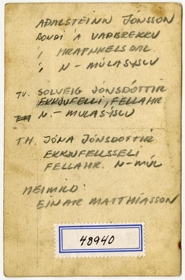 AÐALSTEINN JÓNSSON
Á VAÐBREKKU
Í HRAFNKELSDAL
Í N-MÚLASÝSLU
TV. SOLVEIG JÓNSDÓTTIR
EKKJUFELLI, FELLAHR.
N-MÚLASÝSLU
TH. JÓNA JÓNSDÓTTIR
EKKJUFELLSSELI
FELLAHR. N-MÚL
HEIMILD:
EINAR MATTHÍASSON
48940